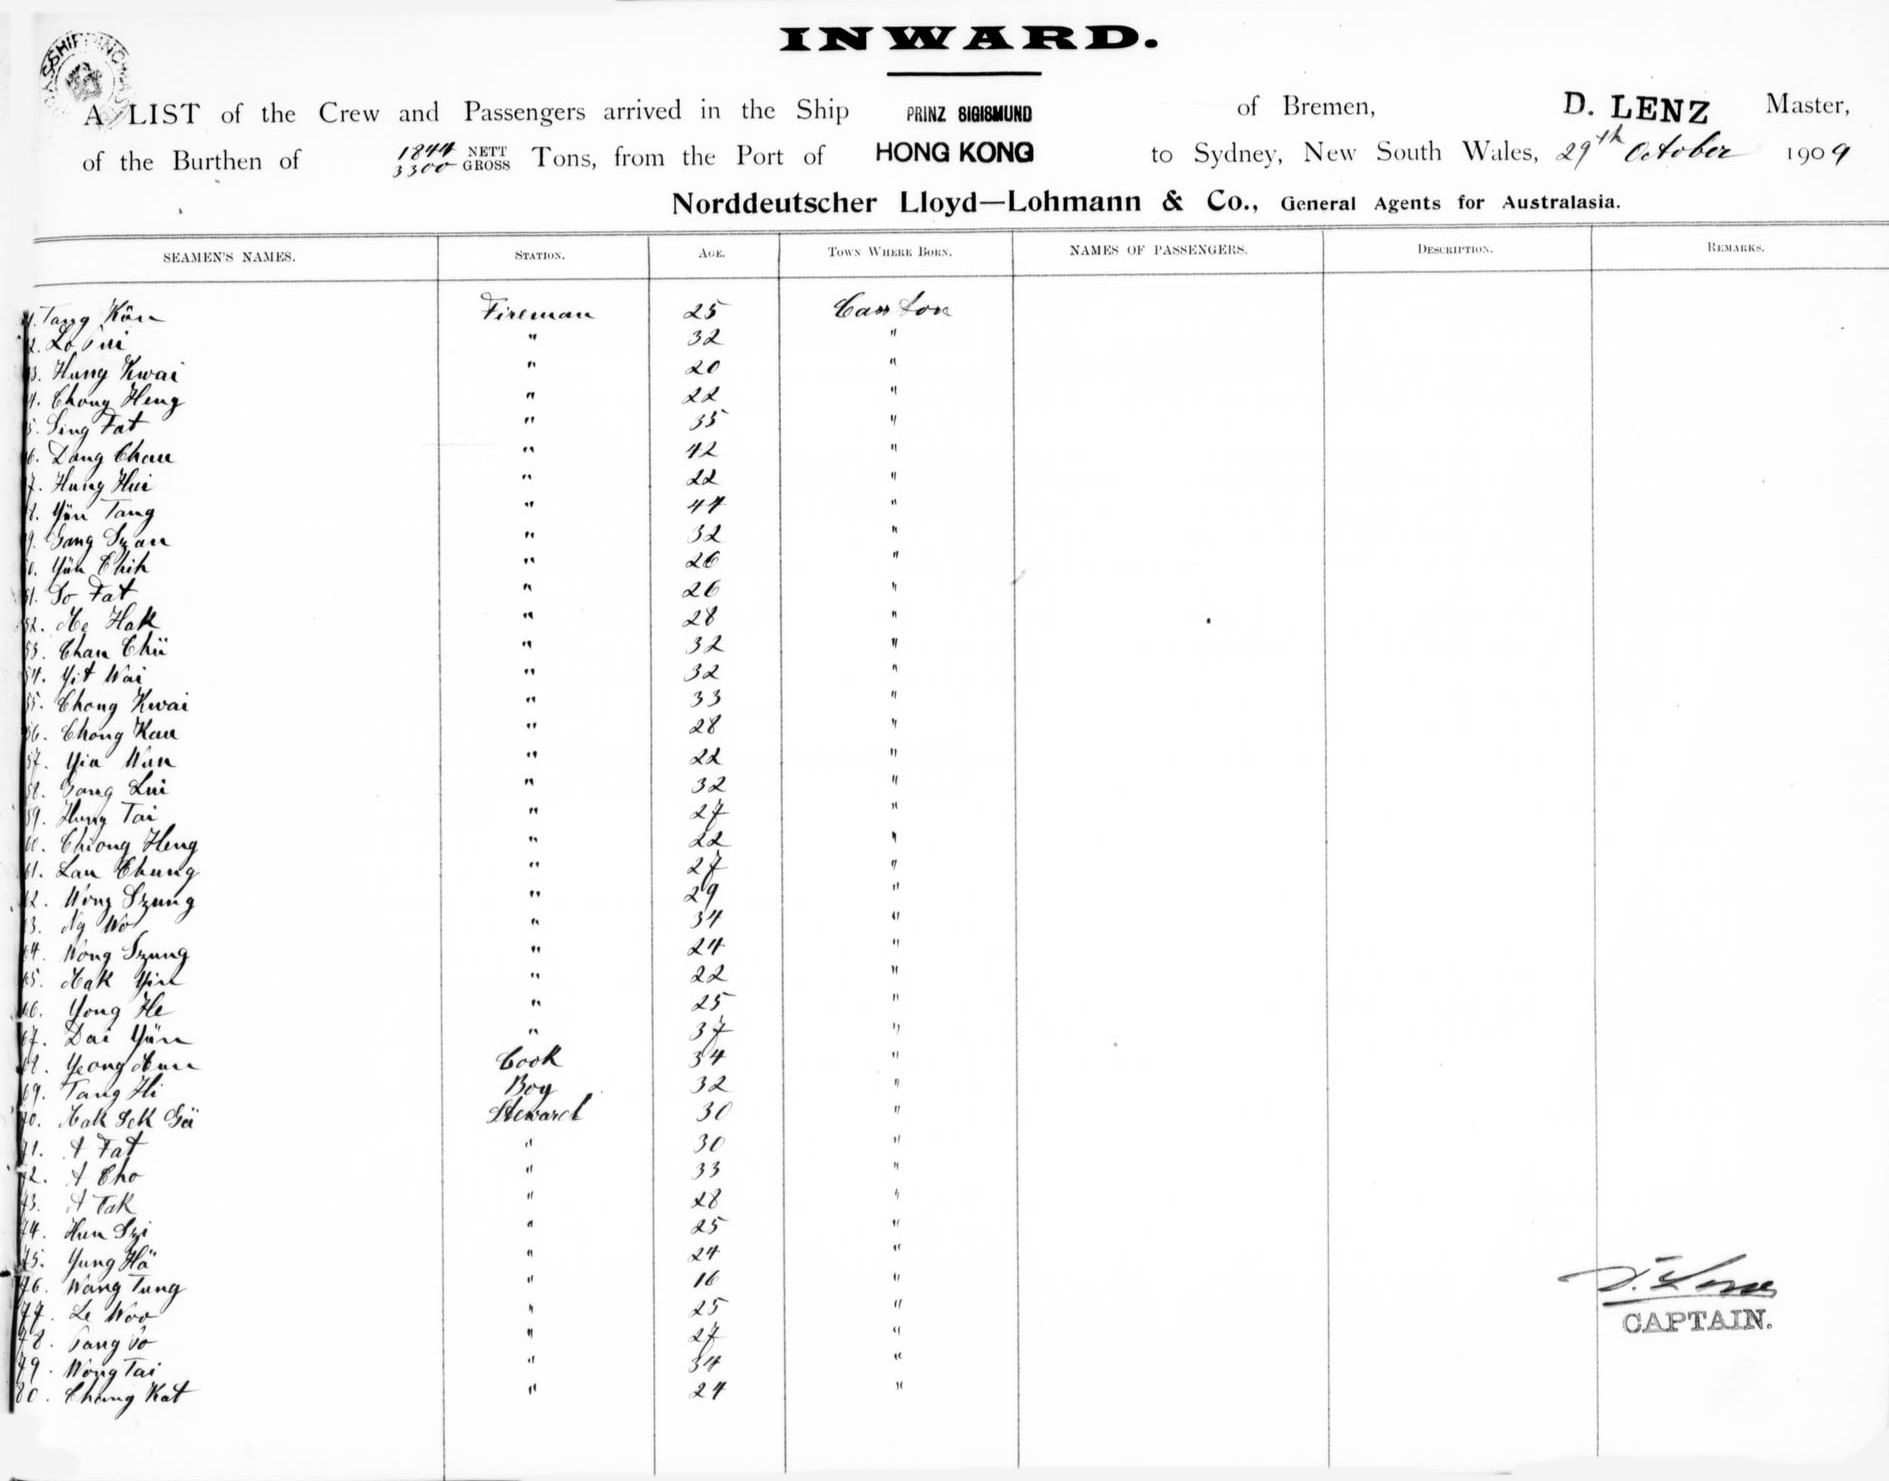 INWARD.
A LIST of the Crew and Passengers arrived in the Ship PRINZ SIGISMUND of Bremen, D. LENZ Master,
of the Burthen of 1844 NETT 3300 GROSS Tons, from the Port of HONG KONG to Sydney, New South Wales, 29th October 1909
Norddeutscher Lloyd—Lohmann & Co., General Agents for Australasia.
SEAMEN'S NAMES. STATION. AGE. TOWN WHERE BORN. NAMES OF PASSENGERS. DESCRIPTION. REMARKS.
Tang Kün Fireman 25 Canton
Lo " 32 "
Hung Kwai " 20 "
Chong Heng " 22 "
Sing Fat " 35 "
Dong Chau " 42 "
Hung Hui " 22 "
Yün Tang " 44 "
Gong Szan " 32 "
Yün Chih " 26 "
51. So Fat " 26 "
52. Ho Hak " 28 "
53. Chan Chü " 32 "
54. Yit Wai " 32 "
55. Chong Kwai " 33 "
56. Chong Kau " 28 "
57. Yin Wan " 22 "
58. Gong Lui " 32 "
59. Hung Tai " 27 "
60. Chiong Heng " 22 "
61. Lau Chung " 27 "
62. Wong Szung " 29 "
63. Ng Wo " 34 "
64. Wong Szung " 24 "
65. Mak Yin " 22 "
66. Yong He " 25 "
67. Dai Yün " 37 "
68. Yeong Cook 34 "
69. Tang Hi Boy 32 "
70. Mak Sek Steward 30 "
71. A Fat " 30 "
72. A Cho " 33 "
73. A Tak " 28 "
74. Hun Szi " 25 "
75. Yung Hä " 24 "
76. Wang Tung " 16 "
77. Le Woo " 25 "
78. " 27 "
79. Wong Tai " 34 "
80. Chung Kat " 24 "
D. Lenz
CAPTAIN.